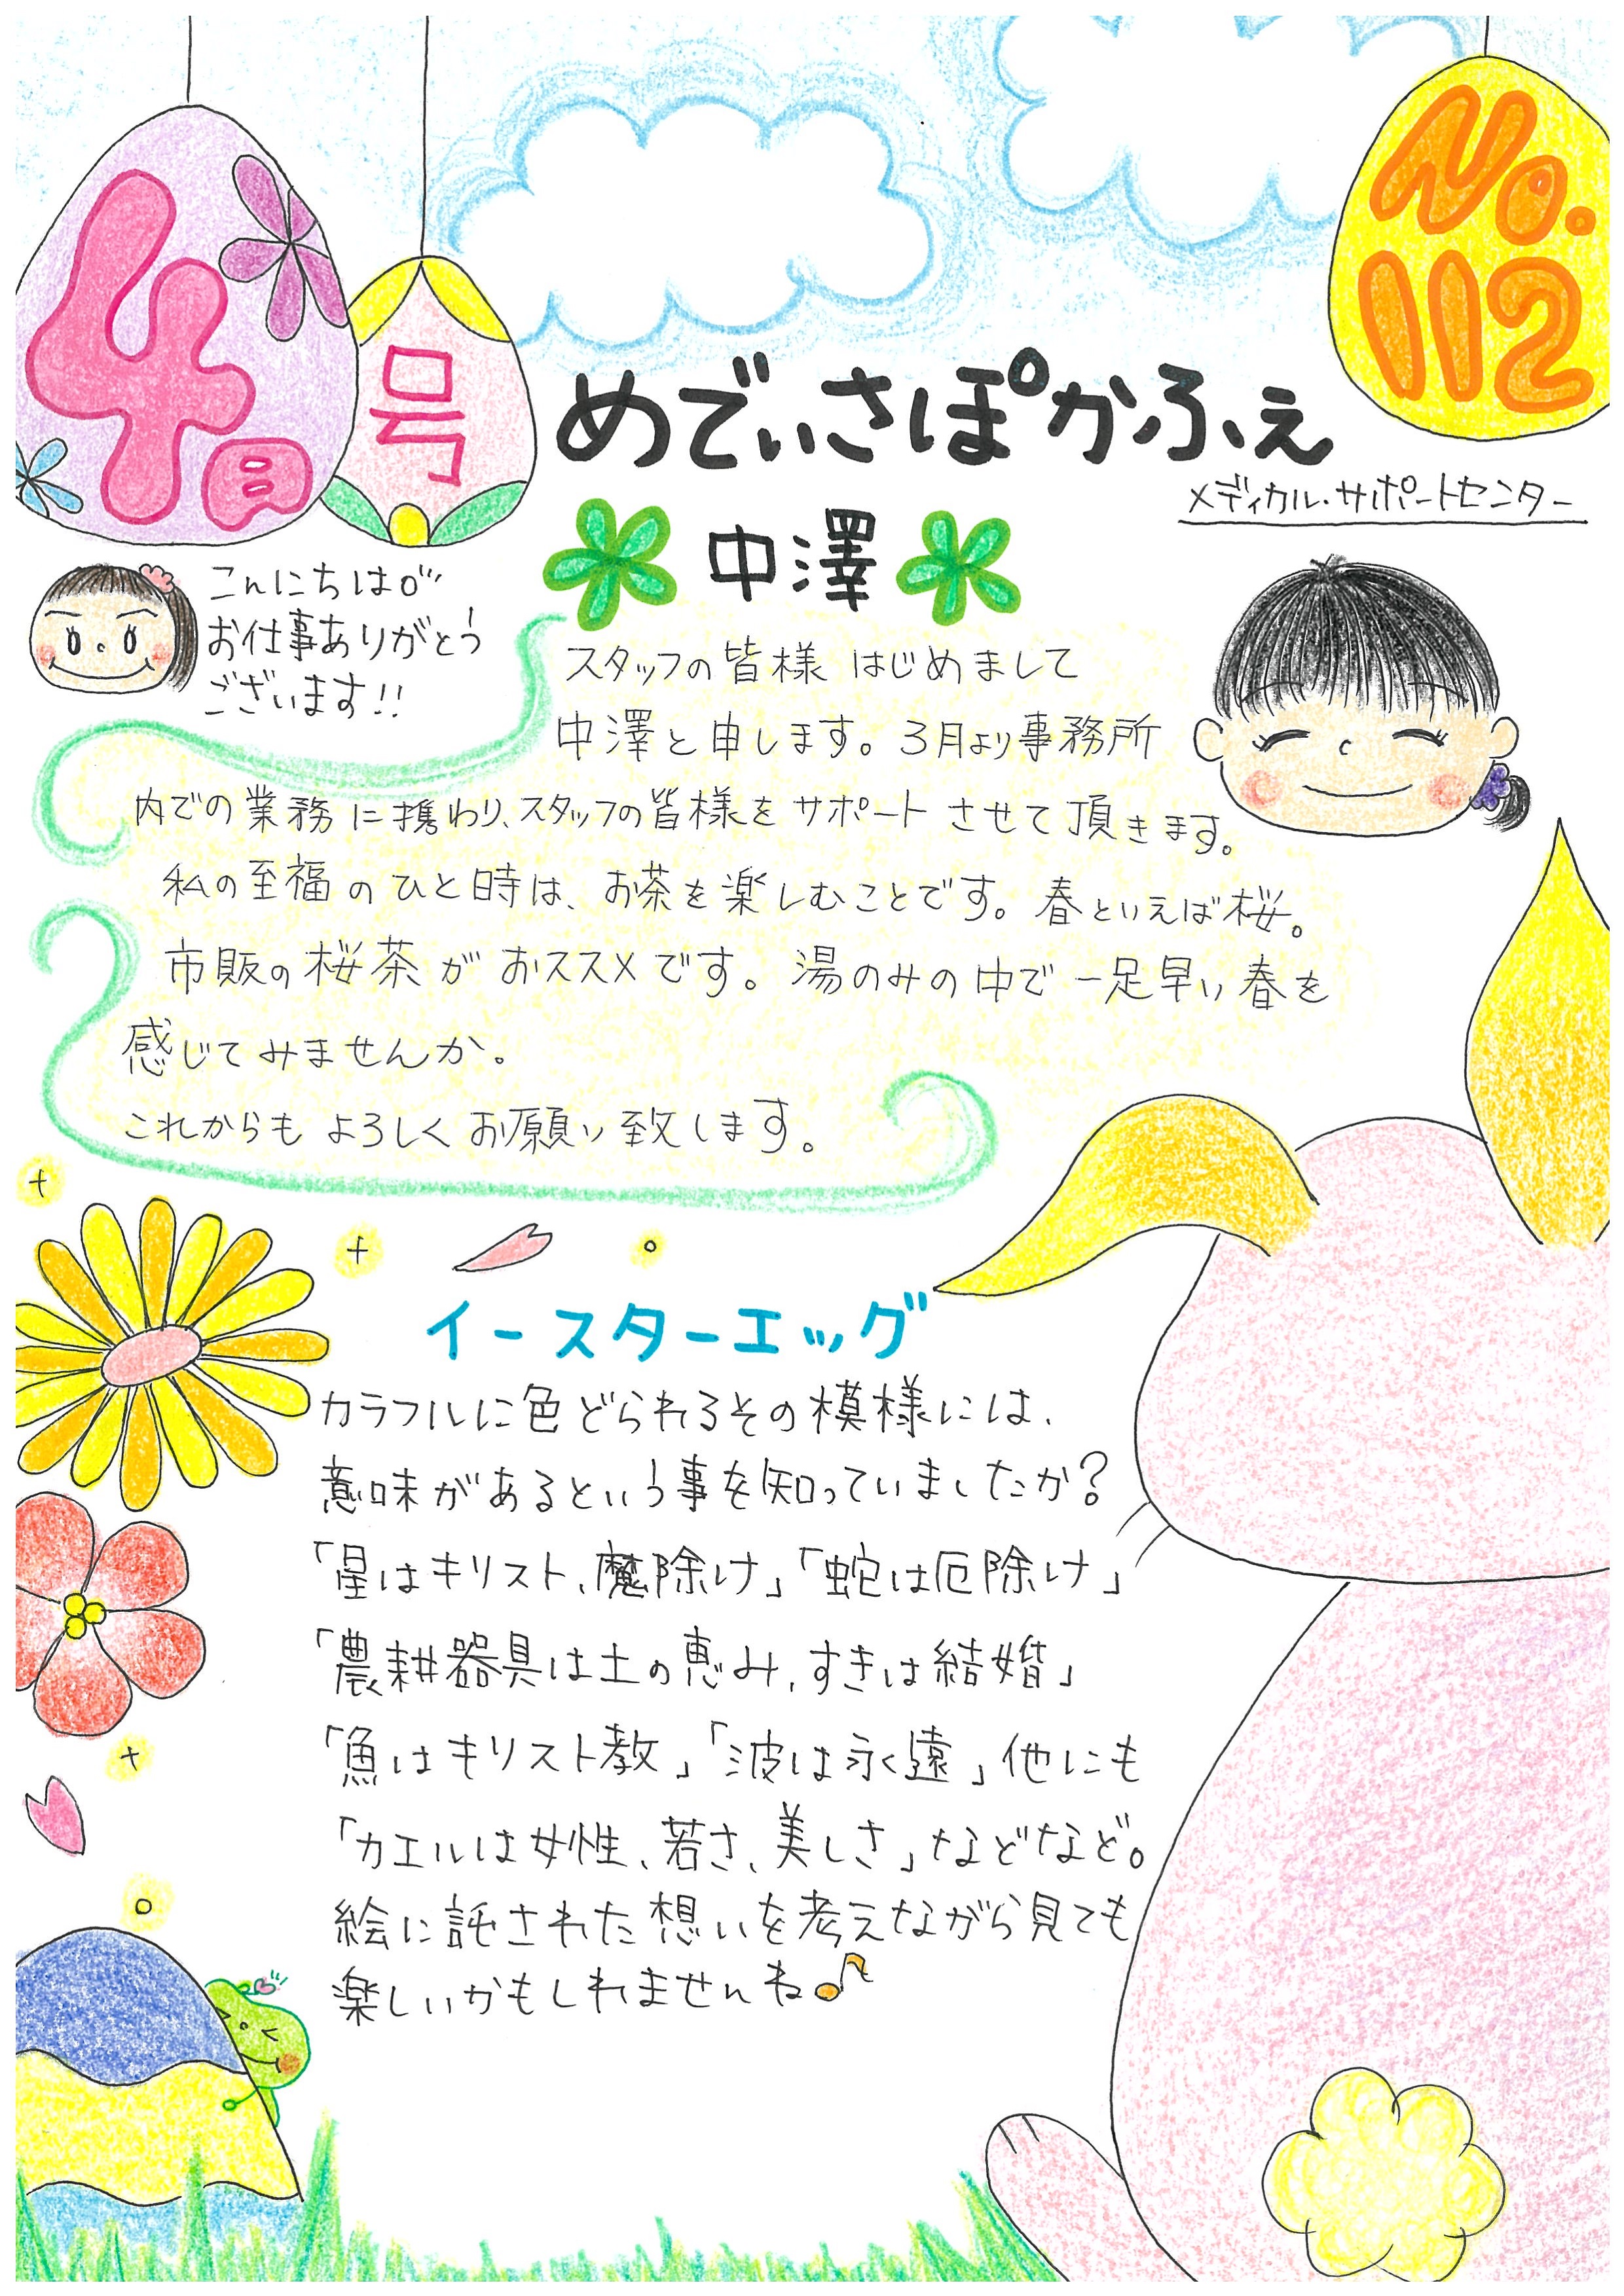 4月
号
No.
112
めでぃさぽかふぇ
メディカル・サポートセンター
中澤
こんにちは
お仕事ありがとう
ございます!!
スタッフの皆様 はじめまして
中澤と申します。3月より事務所
内での業務に携わり、スタッフの皆様をサポートさせて頂きます。
私の至福のひと時は、お茶を楽しむことです。春といえば桜。
市販の桜茶がおススメです。湯のみの中で一足早い春を
感じてみませんか。
これからもよろしくお願い致します。
イースターエッグ
カラフルに色どられるその模様には、
意味があるという事を知っていましたか?
「星はキリスト、魔除け」「蛇は厄除け」
「農耕器具は土の恵み、すきは結婚」
「魚はキリスト教」「波は永遠」他にも
「カエルは女性、若さ、美しさ」などなど。
絵に託された想いを考えながら見ても
楽しいかもしれませんね♪